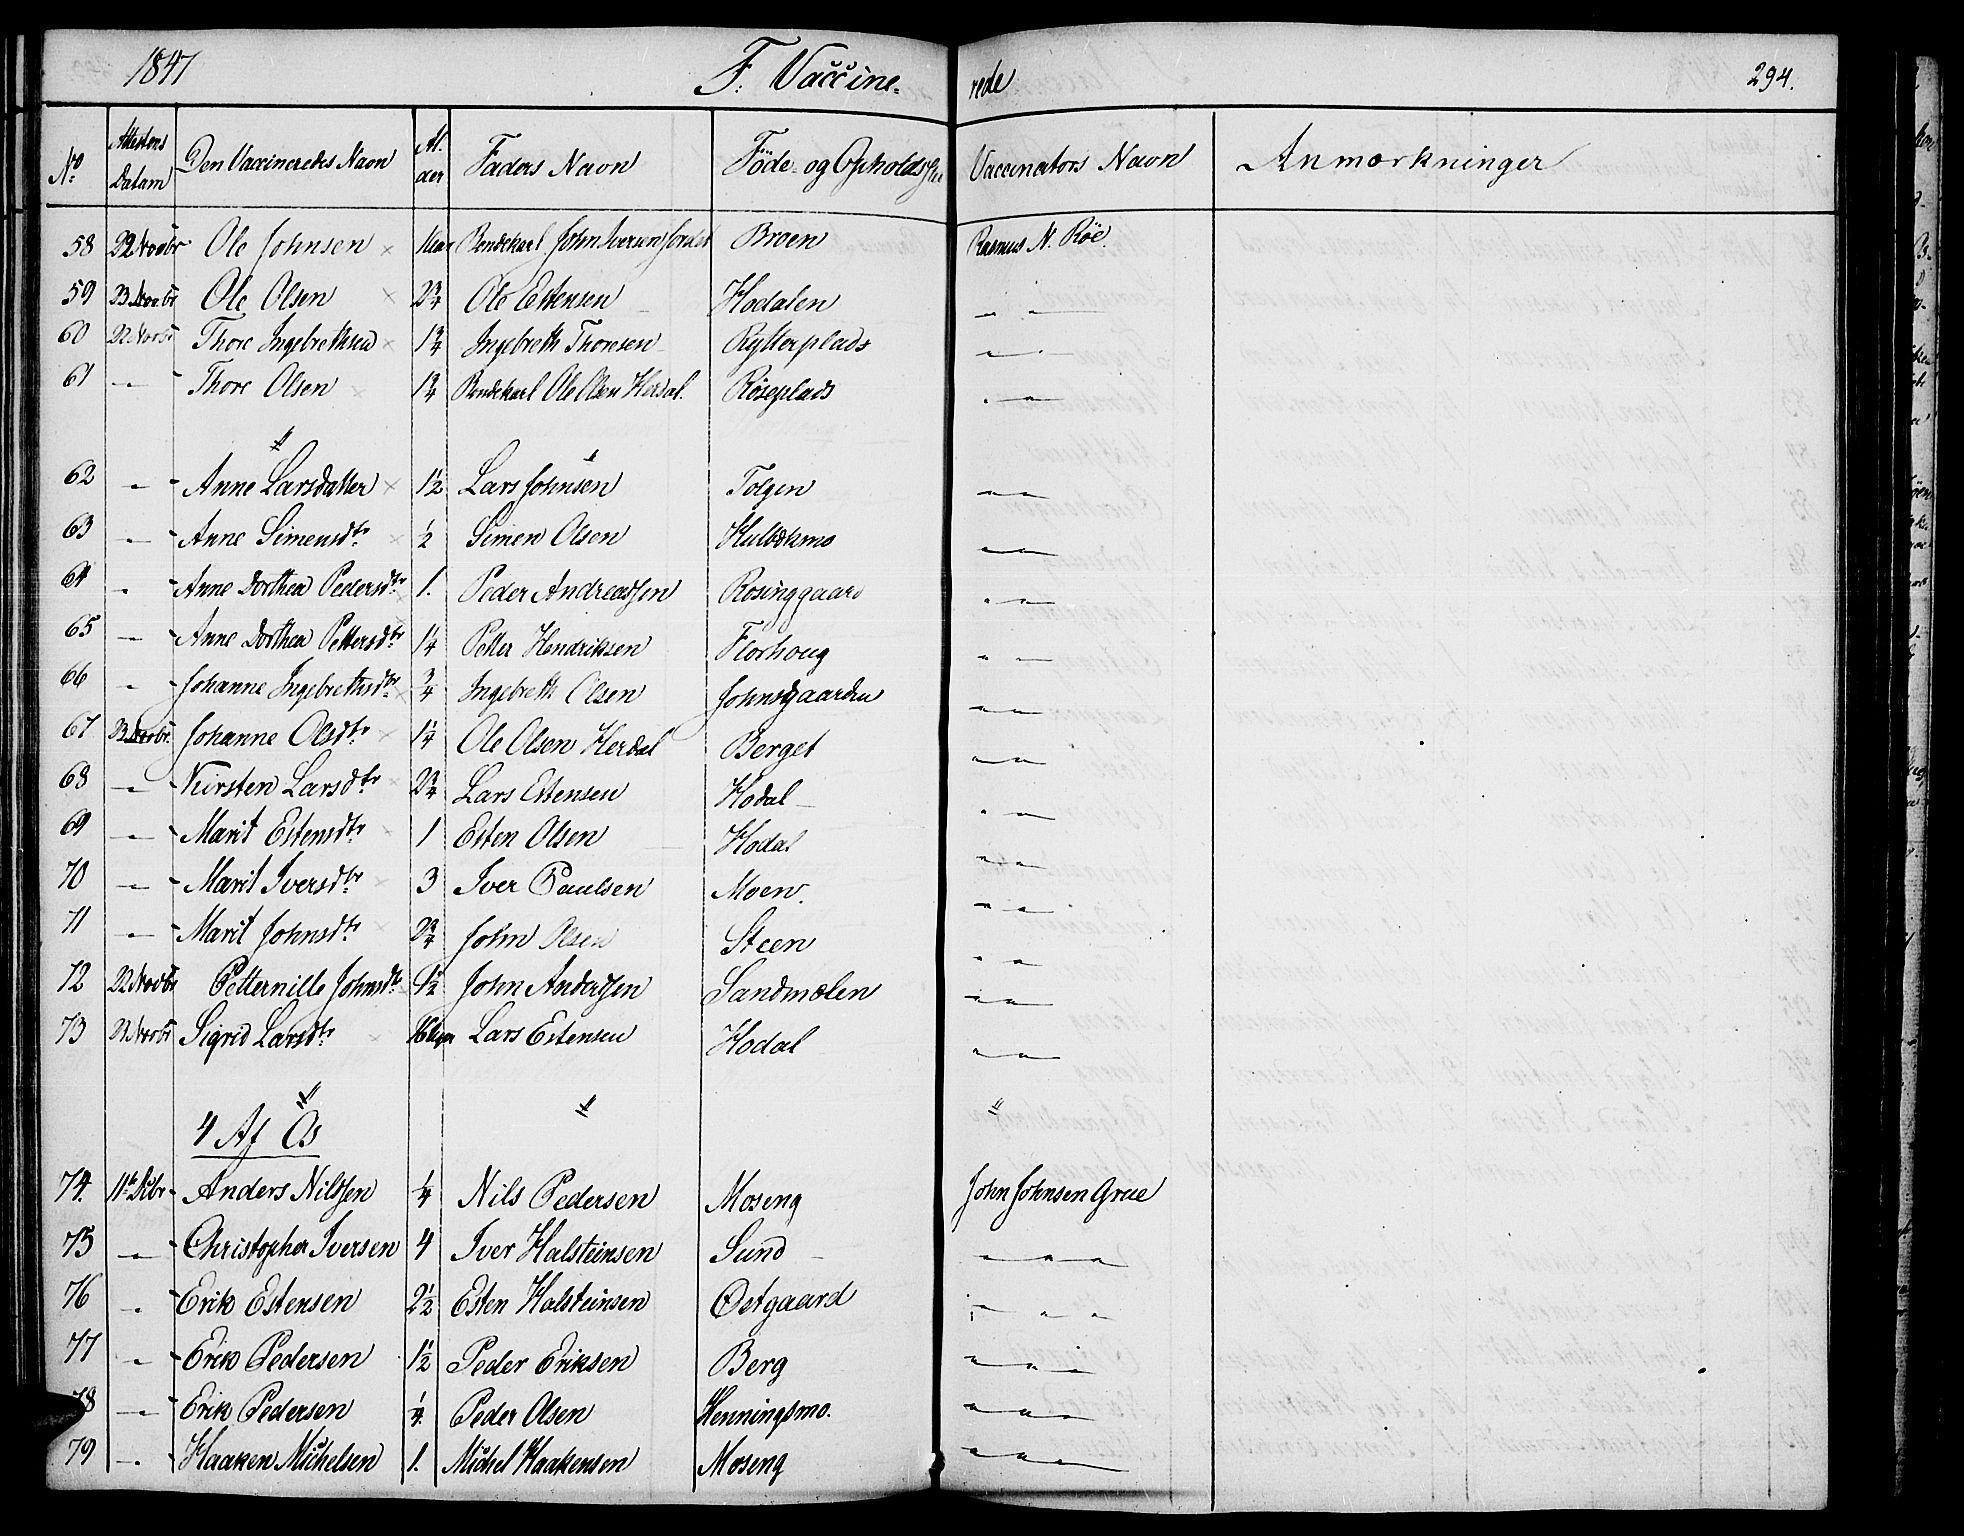 1847 F. Vaccine- rede 294.
No Attestens Datum Den Vaccineredes Navn Alder Faders Navn Föde- og Opholds Vaccinators Navn Anmærkninger
58 22 Novbr Ole Johnsen 1 John Iversen Broen Rasmus N. Röe.
59 23 Novbr Ole Olsen 2 3/4 Ole Estensen Hodalen " "
60 22 Novbr Thore Ingebrethsen 1 3/4 Ingebreth Thoresen Rytterplads " "
61 " Thore Olsen 1 3/4 Ole Olsen Herdal. Röseplads " "
62 " Anne Larsdatter 1 1/2 Lars Johnsen Tolgen " "
63 " Anne Simensdtr 1/2 Simen Olsen " "
64 " Anne Dorthea Pedersdtr 1. Peder Andreassen Rosinggaard " "
65 " Anne Dorthea Pettersdtr 1 1/4 Petter Hendriksen Florhoug " "
66 " Johanne Ingebrethsdtr 3/4 Ingebreth Olsen Johnsgaarden " "
67 23 Novbr. Johanne Olsdtr 1 1/4 Ole Olsen Herdal Berget " "
68 " Kirsten Larsdtr 2 3/4 Lars Estensen Hodal " "
69 " Marit Estensdtr 1 Esten Olsen Hodal " "
70 " Marit Iversdtr 3 Iver Paulsen Moen. " "
71 " Marit Johnsdtr 2 3/4 John Olsen Steen " "
72 22 Novbr Petternille Johnsdtr 1 1/2 John Anderssen Sandmælen " "
73 23 Novbr Sigrid Larsdtr Lars Estensen Hodal " "
4 Af Os
74. 11te Dcbr Anders Nilssen 1/4 Nils Pedersen Moseng John Johnsen Grue
75 " Christopher Iversen 4 Iver Halsteinsen Sund " " "
76 " Erik Estensen 2 1/2 Esten Halsteinsen Østgaard " " "
77 " Erik Pedersen 1 1/2 Peder Eriksen Berg " " "
78 " Erik Pedersen 1/4 Peder Olsen Henningsmo. " " "
79 " Haaken Michelsen 1. Michel Haakensen Moseng " " "